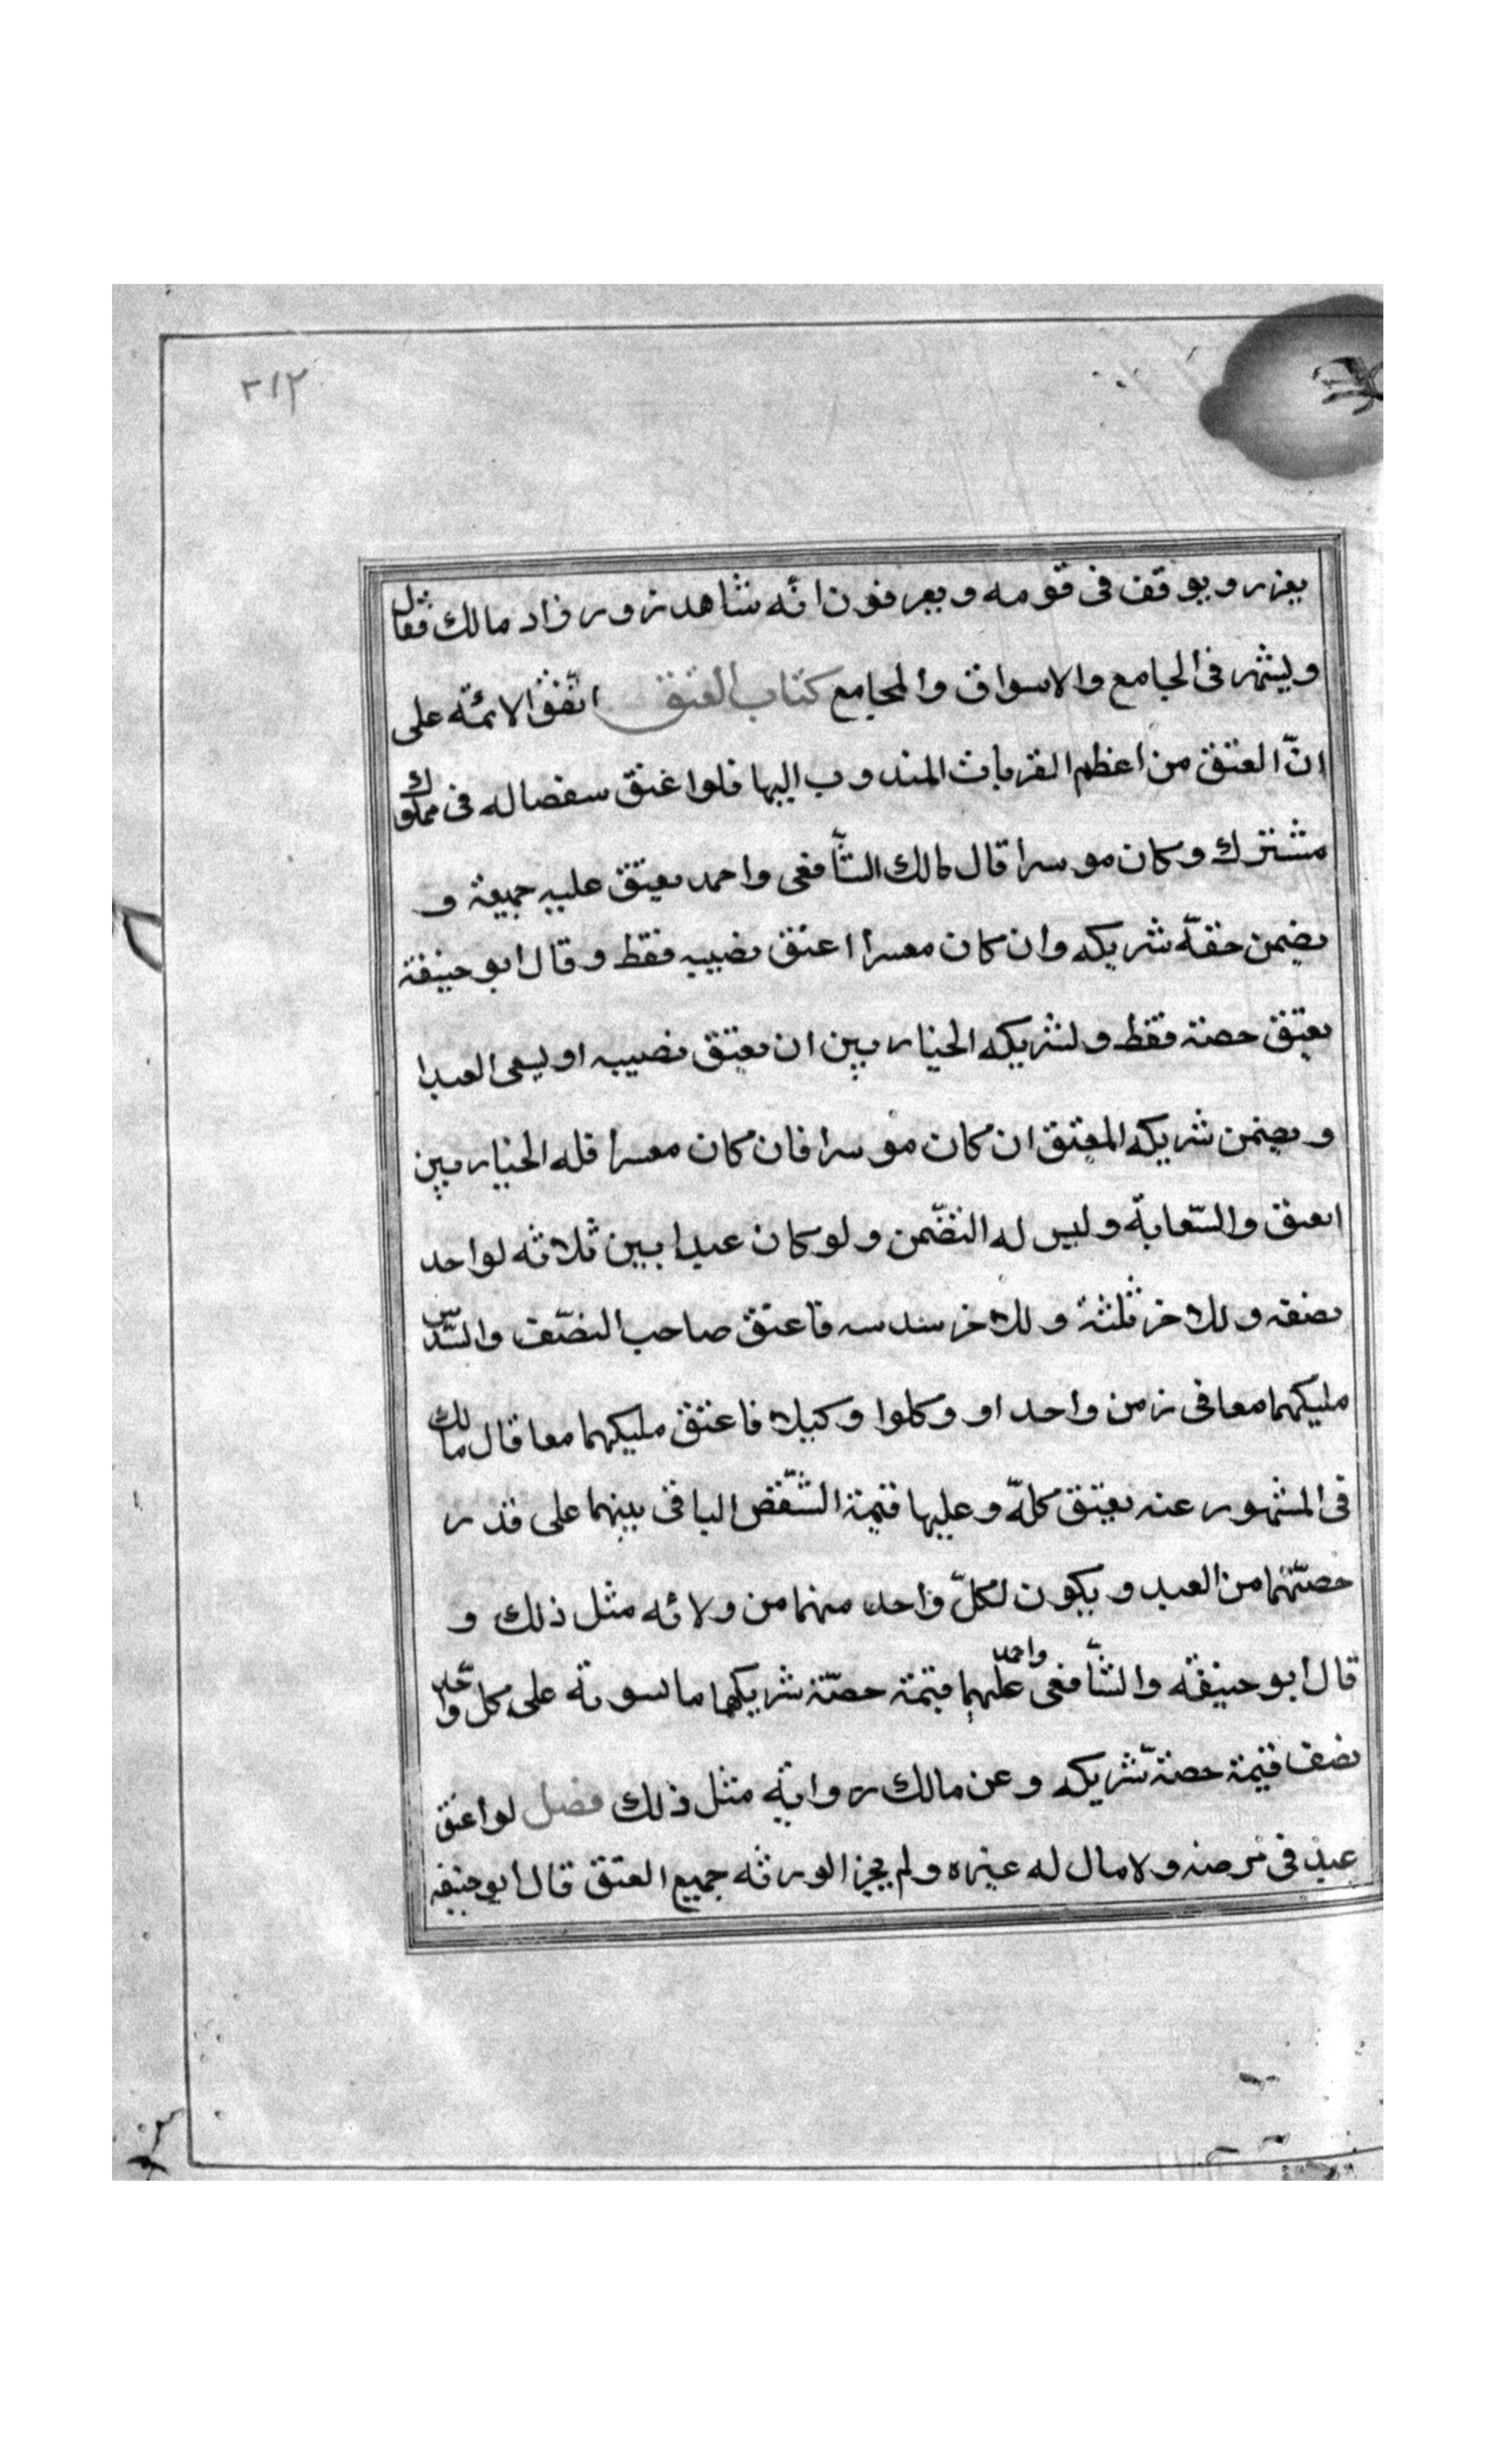 ٣١٢
يعزر ويوقف فى قومه ويعرفون انّه شاهد زور وزاد مالك فقال
ويشهر فى الجامع والاسواق والمجامع كتاب العتق اتّفق الائمّه على
انّ العتق من اعظم القربات المندوب اليها فلو اعتق سقصا له فى مملوك
مشترك وكان موسرا قال مالك الشّافعى واحمد يعتق عليه جميعه و
يضمن حقّه شريكه وان كان معسرا اعتق نصيبه فقط وقال ابو حنيفة
يعتق حصته فقط ولشريكه الخيار بين ان يعتق نصيبه او يسعى العبدا
و يضمن شريكه المعتق ان كان موسرا فان كان معسرا فله الخيار بين
العتق والسّعاية وليس له التضّمن ولو كان عبدا بين ثلاثه لواحد
نصفه وللاخر ثلثه وللاخر سدسه فاعتق صاحب النصّف والسّدس
مليكهما معا فى زمن واحد او وكلوا وكيلا فاعتق مليكهما معا قال مالك
فى المشهور عنه يعتق كلّه وعليها قيمة الشّقص الباقى بينهما على قدر
حصتّهما من العبد ويكون لكلّ واحد منهما من ولائه مثل ذلك و
قال ابو حنيفه والشّافعى واحمد عليهما قيمة حصّة شريكهما مالسوية على كل واحد
نصف قيمة حصة شريكه وعن مالك رواية مثل ذلك فصل لو اعتق
عبد فى مرضه ولا مال له غيره ولم يجز الورثه جميع العتق قال ابو حنيفه